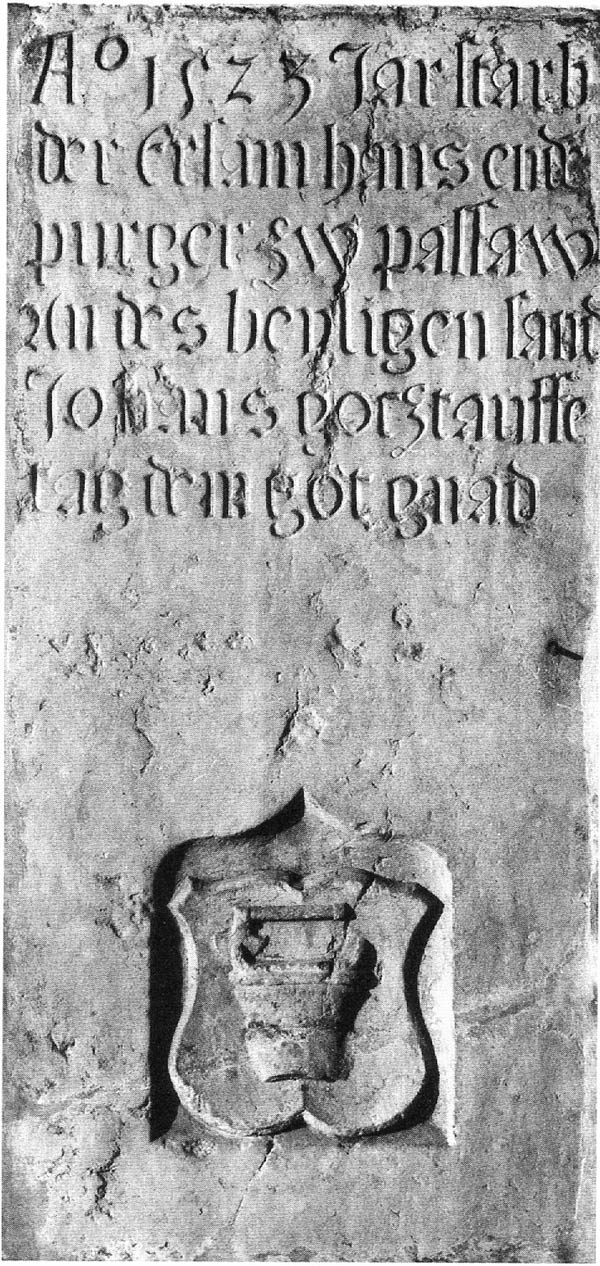 Aº 1523 Jar starb
der Ersam hans ende
purger zw passaw
An des heyligen sand
Johans gotztauffe
tag dem got gnad